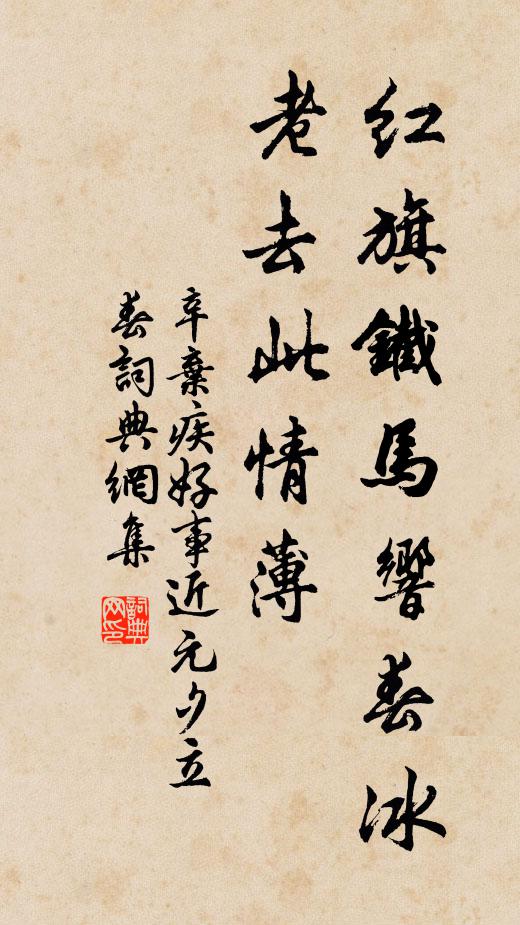 红旗鐵馬響春冰
老去此情薄
辛棄疾好事近元夕立
春詞典網集
詞典
网印